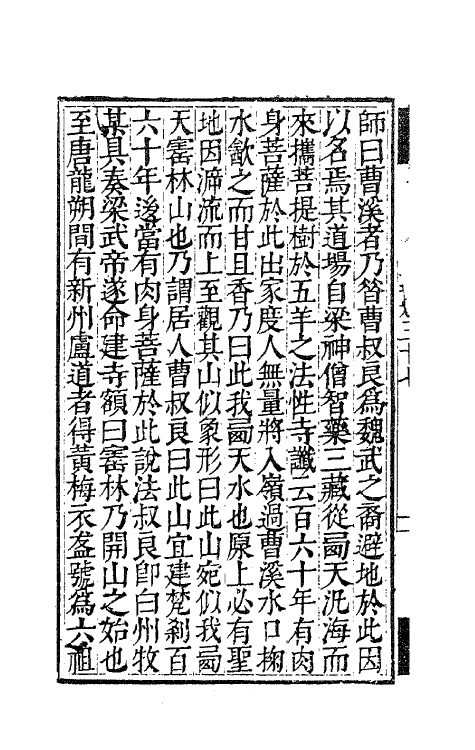 師曰曹溪者乃昝曹叔良爲魏武之裔避地於此因
以名焉其道場自梁神僧智藥三藏從西天汎海而
來攜菩提樹於五羊之法性寺讖云百六十年有肉
身菩薩於此出家度人無量將入嶺過曹溪水口掬
水飲之而甘且香乃曰此我西天水也原上必有聖
地因泝流而上至觀其山似象形曰此山宛似我西
天寶林山也乃謂居人曹叔良曰此山宜建梵剎百
六十年後當有肉身菩薩於此說法叔良卽白州牧
某具奏梁武帝遂命建寺額曰寶林乃開山之始也
至唐龍朔間有新州盧道者得黃梅衣盋號爲六祖